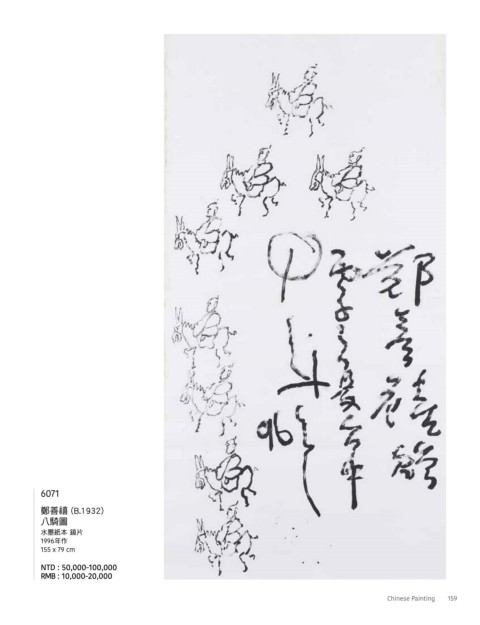 鄭善禧
96
6071
鄭善禧 (B.1932)
八騎圖
水墨紙本 鏡片
1996年作
155 x 79 cm
NTD : 50,000-100,000
RMB : 10,000-20,000
Chinese Painting 159